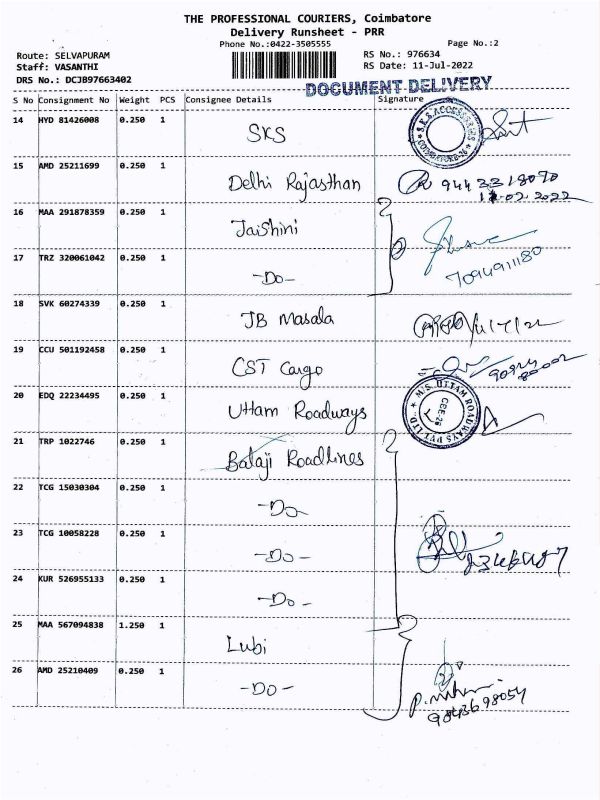 THE PROFESSIONAL COURIERS, Coimbatore
Delivery Runsheet - PRR
Phone No.:0422-3505555
Page No.:2
Route: SELVAPURAM
RS No.: 976634
Staff: VASANTHI
RS Date: 11-Jul-2022
DRS No.: DCJB97663402
DOCUMENT DELIVERY
S No Consignment No Weight PCS Consignee Details Signature
14 HYD 81426008 0.250 1 SKS
S.K.S ACCESSORIES
COIMBATORE-26
15 AMD 25211699 0.250 1 Delhi Rajasthan
16 MAA 291878359 0.250 1 Jaishini
17 TRZ 320061042 0.250 1 -Do-
7094911180
18 SVK 60274339 0.250 1 JB Masala
19 CCU 501192458 0.250 1 CST Cargo
20 EDQ 22234495 0.250 1 Uttam Roadways
M/S. UTTAM ROADWAYS PVT LTD
CBE-26
21 TRP 1022746 0.250 1 Balaji Roadlines
22 TCG 15030304 0.250 1 -Do-
23 TCG 10058228 0.250 1 -Do-
24 KUR 526955133 0.250 1 -Do-
25 MAA 567094838 1.250 1 Lubi
26 AMD 25210409 0.250 1 -DO-
9843698054